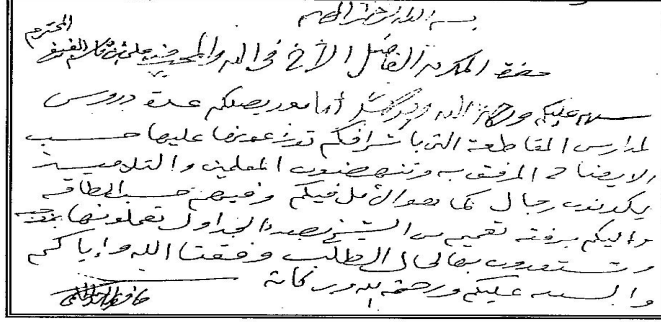 بسم الله الرحمن الرحيم
حضرة المكرم الفاضل الأخ في الله والمحب فيه علي بن قاسم الفيفي المحترم
سلام عليكم ورحمة الله وبركاته أما بعد يصلكم عدة دروس
لمدارس المقاطعة التي باشرافكم توزعونها عليها حسب
الايضاح المرفق به وتنهضون المعلمين والتلاميذ
يكونون رجال كما هو الأمل فيكم وفيهم حسب الطاقة
واليكم برفقه تعميم من الشيخ بصدد الجداول تعملونها بدقة
وتستعدون بها لحال الطلب وفقنا الله وإياكم
والسلام عليكم ورحمة الله وبركاته
حافظ بن أحمد الحكمي